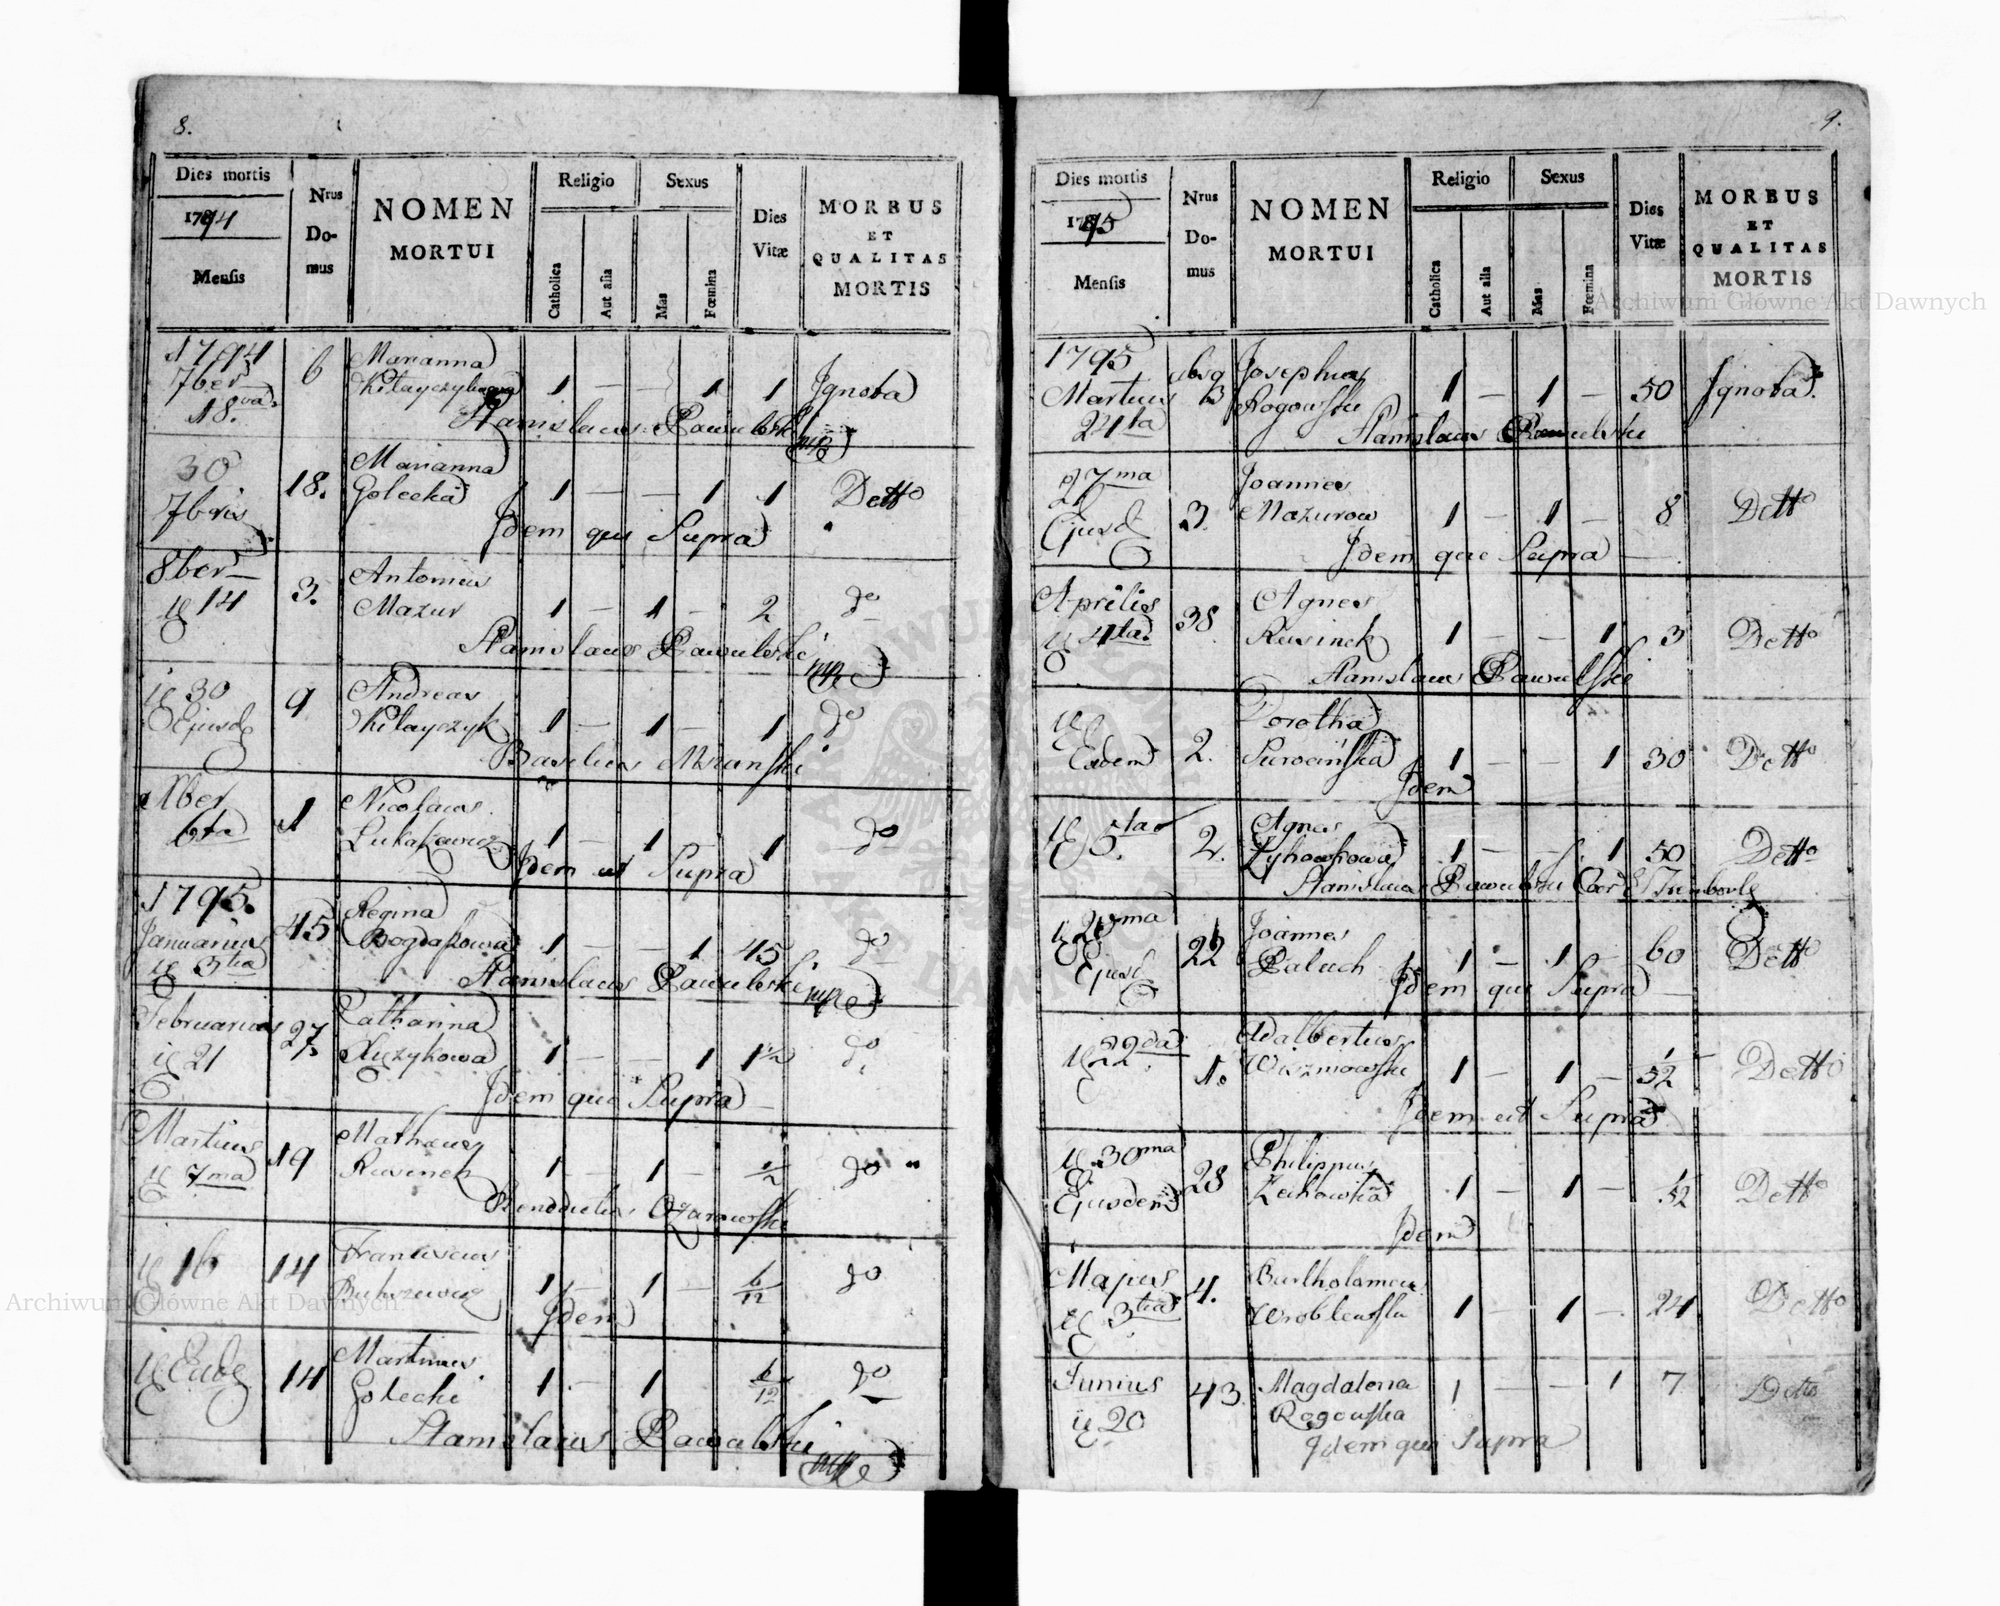 8.
Dies mortis
1794
Mensis
Nrus
Do-
mus
NOMEN
MORTUI
Religio
Catholica
Aut alia
Sexus
Mas
Fœmina
Dies
Vitæ
MORBUS
ET
QUALITAS
MORTIS
1794
7ber
18.va
6
Marianna
1 — — 1 1 Ignota
Stanislaus Pawulski mp
30
7bris
18.
Marianna
Golecka
1 — — 1 1 Detto
Idem qui Supra
8ber
14
3.
Antonius
Mazur
1 — 1 — 2 do
Stanislaus Pawulski mp
30
Ejusd
9
Andreas
Kitayczyk
1 — 1 — 1 do
Basilius
Xber
6ta
1
Nicolaus
1 1 1 do
Idem ut Supra
1795.
Januarius
3tia
45
Regina
1 — — 1 45 do
Stanislaus Pawulski mp
Februarius
21
27.
Catharina
1 — — 1 1 1/2 do
Idem qui Supra
Martius
7ma
19
Mathaeus
Rusinek
1 — 1 — 1/2 do
Benedictus Ozarowski
16
14
Franciscus
1 — 1 — 6/12 do
Idem
Eade
14
Martinus
Golecki
1 — 1 6/12 do
Stanislaus Pawulski mp
9.
Dies mortis
1795
Mensis
Nrus
Do-
mus
NOMEN
MORTUI
Religio
Catholica
Aut alia
Sexus
Mas
Fœmina
Dies
Vitæ
MORBUS
ET
QUALITAS
MORTIS
1795
Martius
24ta
Josephus
Rogowski
1 — 1 — 50 Ignota.
Stanislaus Pawulski
27ma
Ejusd
3.
Joannes
Mazurow
1 — 1 — 8 Detto
Idem qui Supra
Aprilis
4ta
38
Agnes
Rusinek
1 — — 1 3 Detto
Stanislaus Pawulski
Eadem
2.
Dorotha
1 — — 1 30 Detto
Idem
5ta
2.
Agnes
1 — — 1 50 Detto
Stanislaus Pawulski
Ejusd
22
Joannes
Paluch
1 — 1 — 60 Detto
Idem qui Supra
22da
1.
Adalbertus
Wiszniowski
1 — 1 — Detto
Idem ut Supra
30ma
Ejusdem
28
Philippus
1 — 1 — Detto
Idem
Majus
3tia
4.
Bartholomeus
Wroblewski
1 — 1 — 24 Detto
Junius
20
43
Magdalena
Rogowska
1 — — 1 7 Detto
Idem qui Supra
Archiwum Główne Akt Dawnych
Archiwum Główne Akt Dawnych